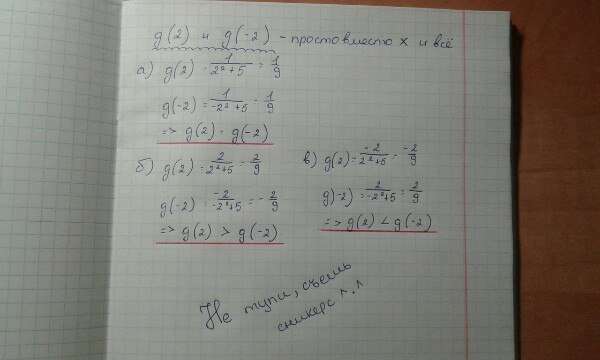 g(2) и g(-2) - просто вместо x и всё
а) g(2) = 1/(2²+5) = 1/9
g(-2) = 1/(-2²+5) = 1/9
=> g(2) = g(-2)
б) g(2) = 2/(2²+5) = 2/9
g(-2) = -2/(-2²+5) = -2/9
=> g(2) > g(-2)
в) g(2) = -2/(2²+5) = -2/9
g)-2) = 2/(-2²+5) = 2/9
=> g(2) < g(-2)
Не тупи, съешь
сникерс ^.^